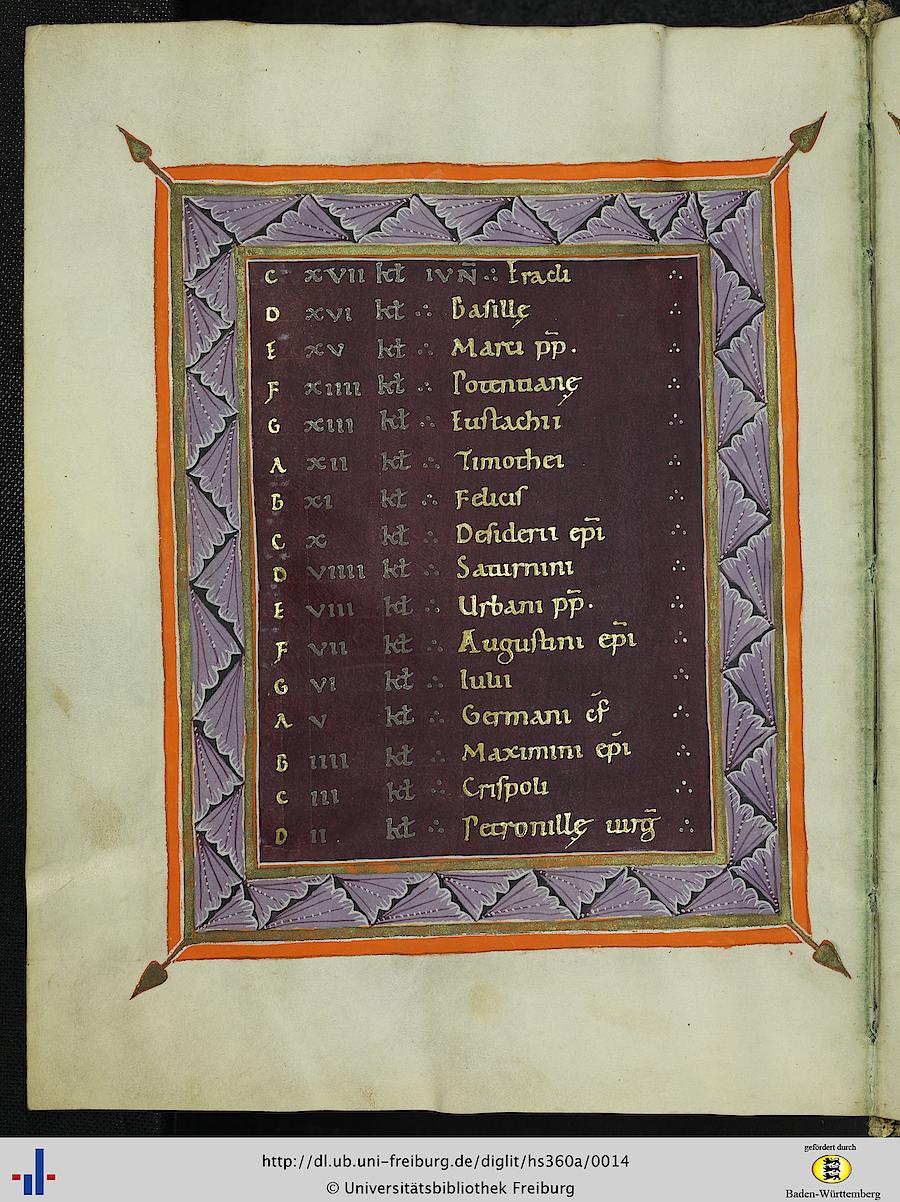 C xvii kł iuñ ∴ Eracli ∴
D xvi kł ∴ Basillę ∴
E xv kł ∴ Marci pp̄. ∴
F xiiii kł ∴ Potentianę ∴
G xiii kł ∴ Eustachii ∴
A xii kł ∴ Timothei ∴
B xi kł ∴ Felicis ∴
C x kł ∴ Desiderii ep̄i ∴
D viiii kł ∴ Saturnini ∴
E viii kł ∴ Urbani pp̄. ∴
F vii kł ∴ Augustini ep̄i ∴
G vi kł ∴ Iulii ∴
A v kł ∴ Germani c̄f ∴
B iiii kł ∴ Maximini ep̄i ∴
C iii kł ∴ Crispoli ∴
D ii kł ∴ Petronillę uirḡ ∴
http://dl.ub.uni-freiburg.de/diglit/hs360a/0014
© Universitätsbibliothek Freiburg
gefördert durch
Baden-Württemberg